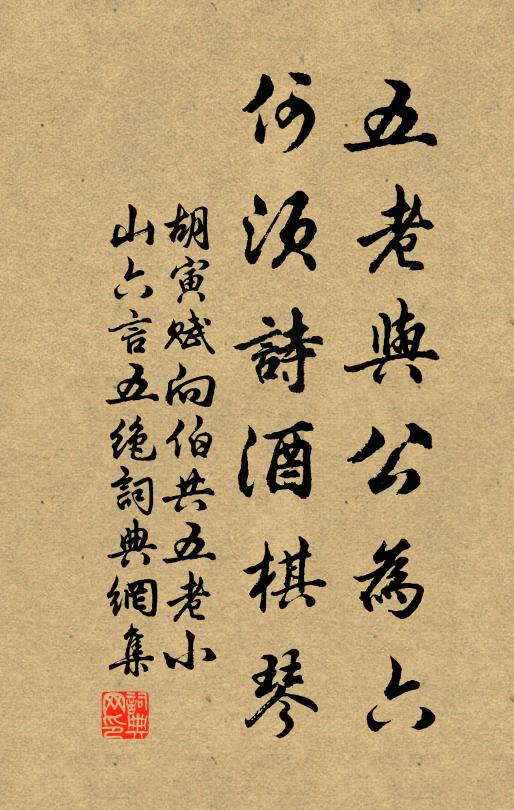 五老與公為六
何須詩酒棋琴
胡寅賦向伯共五老小
山六言五絶詞典網集
詞典网印